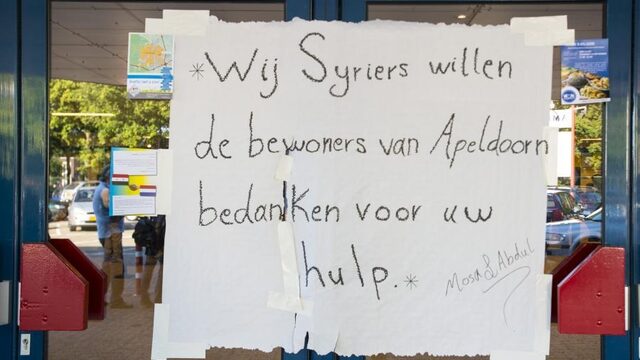 *Wij Syriers willen
de bewoners van Apeldoorn
bedanken voor uw
hulp.*
Mosa & Abdul